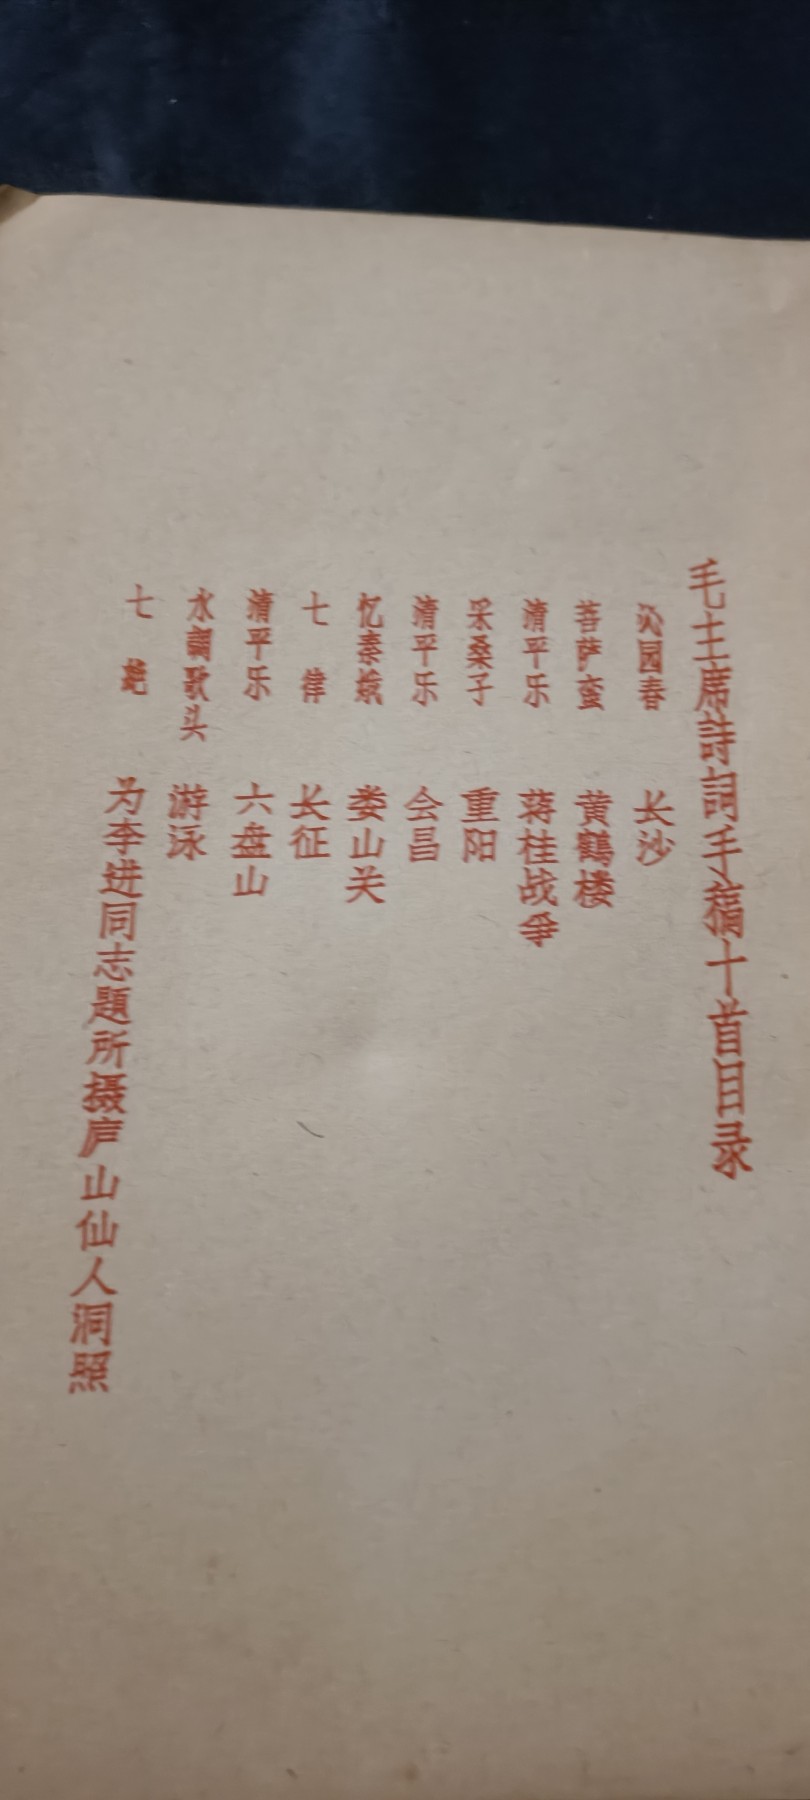 毛主席詩詞手稿十首目录
沁园春 长沙
菩萨蛮 黄鶴楼
清平乐 蒋桂战爭
采桑子 重阳
清平乐 会昌
忆秦娥 娄山关
七律 长征
清平乐 六盘山
水調歌头 游泳
七絶 为李进同志題所摄庐山仙人洞照